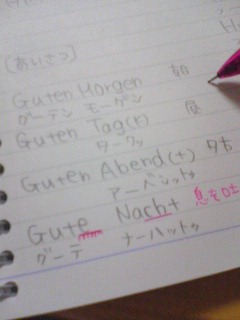 (あいさつ)
Guten Morgen 朝
グーテン モーゲン
Guten Tag(k) 昼
ターク
Guten Abend(t) 夕方
アーベント
Gute Nacht 息を
グーテ ナーハット